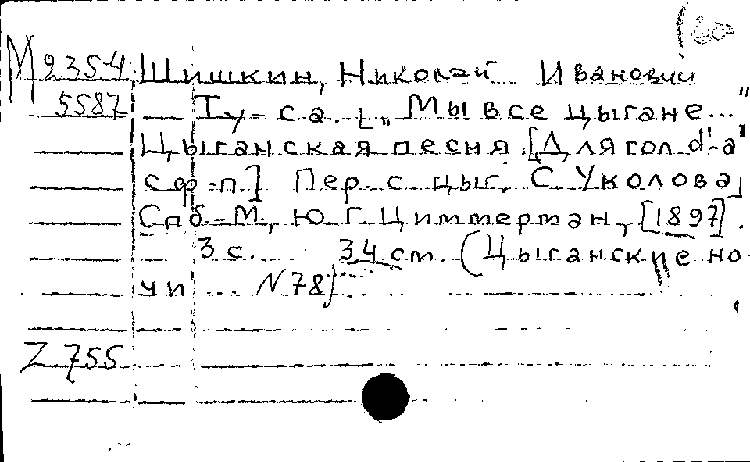 М 235-4 Шишкин, Николай Иванович
5587 Ту-са. [„Мы все цыгане..."
Цыганская песня. [Для гол. d'-a²
с ф-п] Пер. с цыг. С. Уколова]
Спб.-М, Ю. Г. Циммерман, [1897].
3 с. 34 см. (Цыганские но
чи ... N 78)
Z 755